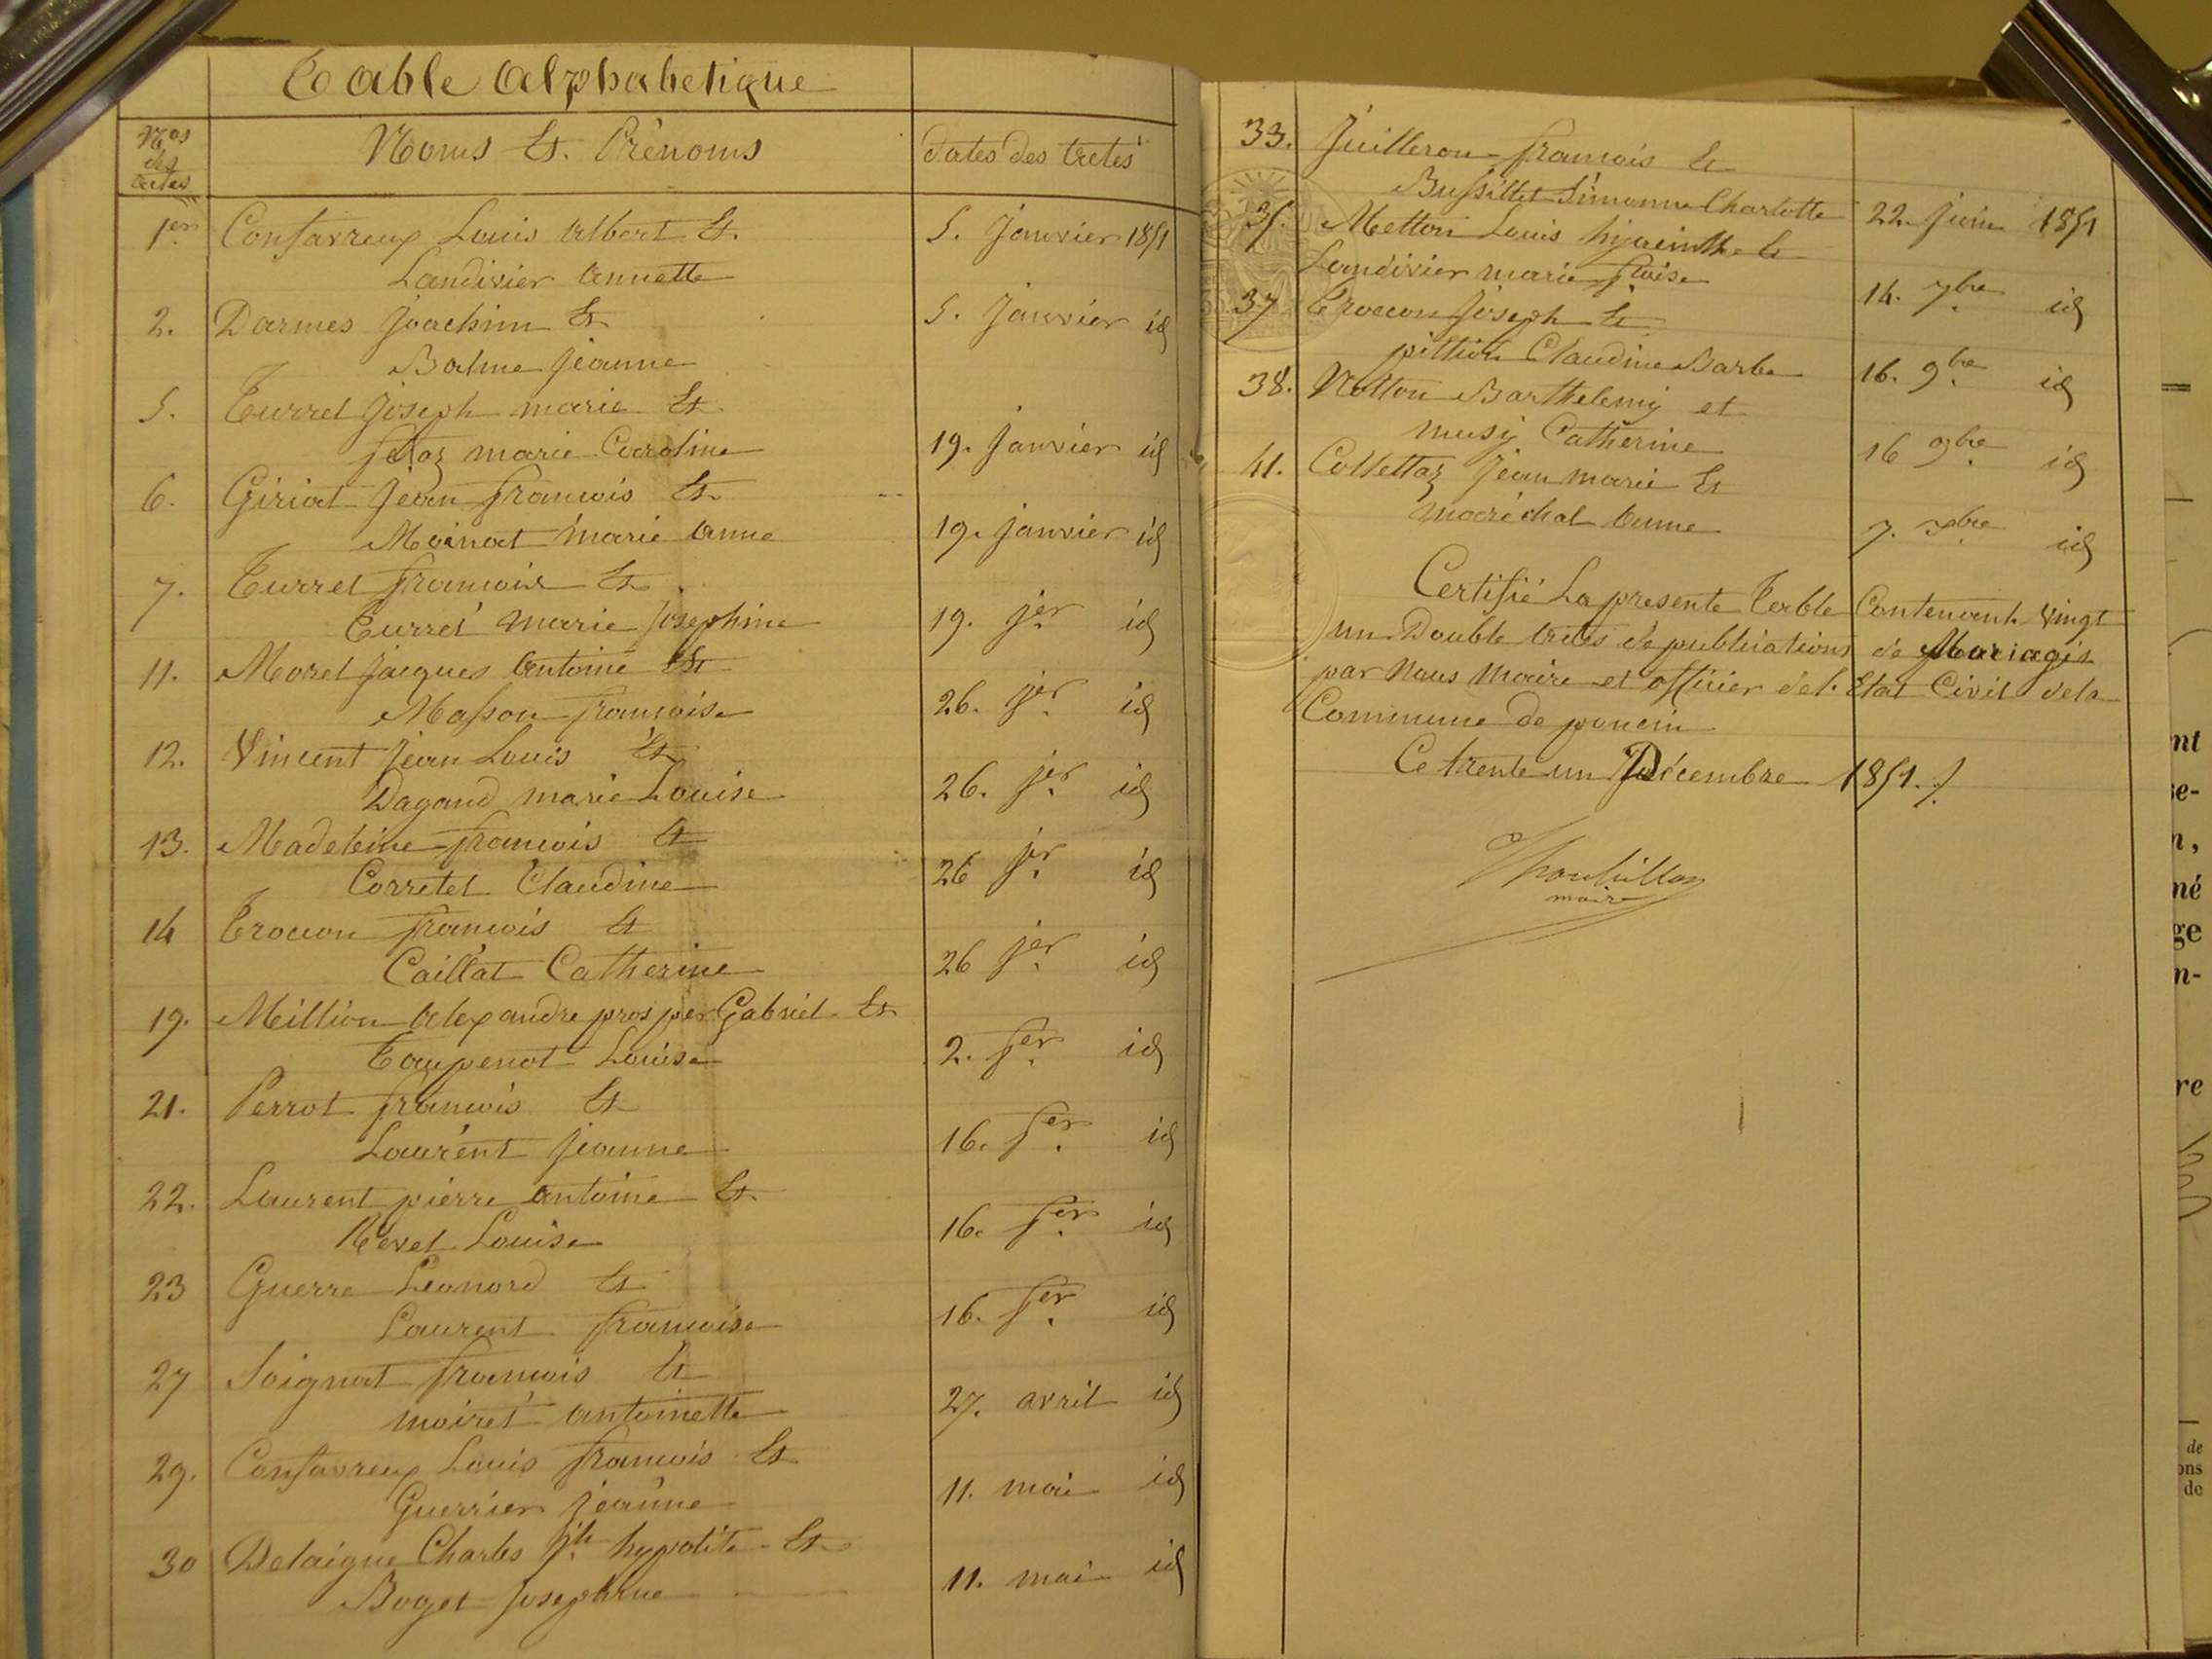 Table Alphabetique
Nos des actes
Noms Et. Prénoms
dates des actes
1er Confavreux Louis Albert Et. 5. Janvier 1851
Landivier Annette
2. Darmes Joachim Et 5. Janvier id
Balme Jeanne
5. Turrel Joseph marie Et
marie Caroline 19. Janvier id
6. Giriat Jean francois Et
Moinat marie anne 19. janvier id
7. Turrel francois Et
Curret marie Josephine 19. jer id
11. Morel Jacques antoine Et
Masson francoise 26. jer id
12. Vincent Jean Louis Et
Dagand marie Louise 26. jer id
13. Madeleine francois Et
Corretel Claudine 26 jer id
14 Trocon francois Et
Caillat Catherine 26 jer id
19. Million Alexandre prosper Gabriel Et
Taupenot Louise 2. fer id
21. Perrot francois Et
Laurent Jeanne 16. fer id
22. Laurent pierre antoine Et
Revel Louise 16. fer id
23 Guerre Leonord Et
Laurent francoise 16. fer id
27 Soignat francois Et
moiret antoinette 27. avril id
29. Confavreux Louis francois Et
Guerrier Jeanne 11. mai id
30 Delaigue Charles Jh hypolite Et
Boget Josephine 11. mai id
33. Juilleron francois Et
Bussillet Simonne Charlotte 22. Juin 1851
35. Metton Louis hyacinthe Et
Landivier marie floise 14. 7bre id
37 Trocon Joseph Et
pittion Claudine Barbe 16. 9bre id
38. Notton Barthelemy et
musy Catherine 16 9bre id
41. Collettaz Jean marie Et
maréchal anne 7. id
Certifié La presente Table Contenant Vingt
un Double actes de publications de Mariages
par Nous Maire et officier de l. Etat Civil dela
Commune de poncin
Ce trente un Décembre 1851./.
maire
nt
se-
n,
né
ge
n-
re
de
ons
de